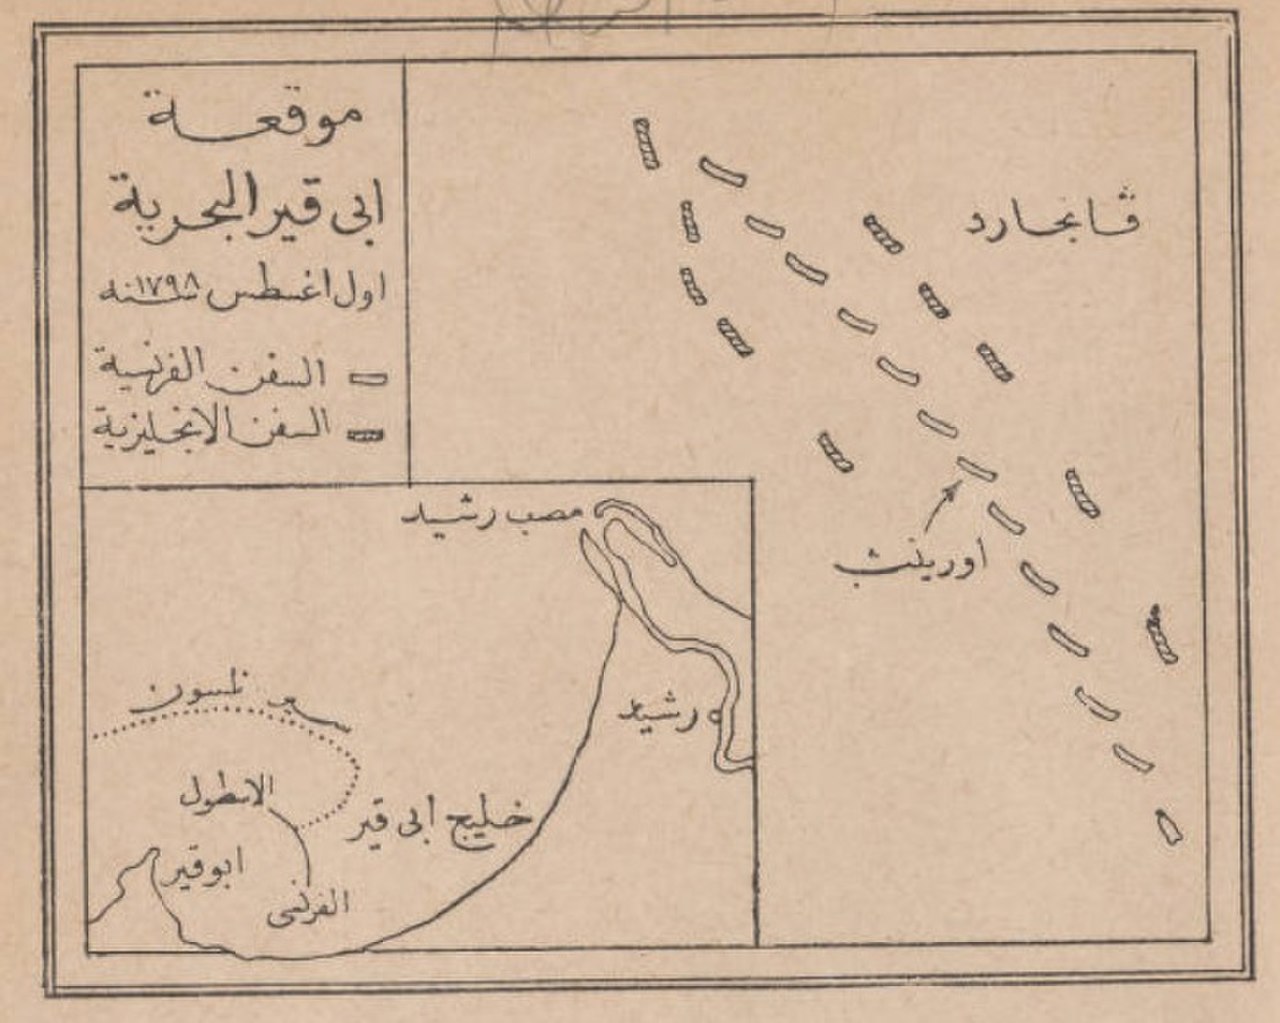 موقعة
ابى قير البحرية
اول اغسطس سنة ١٧٩٨
السفن الفرنسية
السفن الانجليزية
ڤانجارد
اورينت
مصب رشيد
رشيد
سير نلسون
الاسطول
الفرنسى
خليج ابى قير
ابوقير